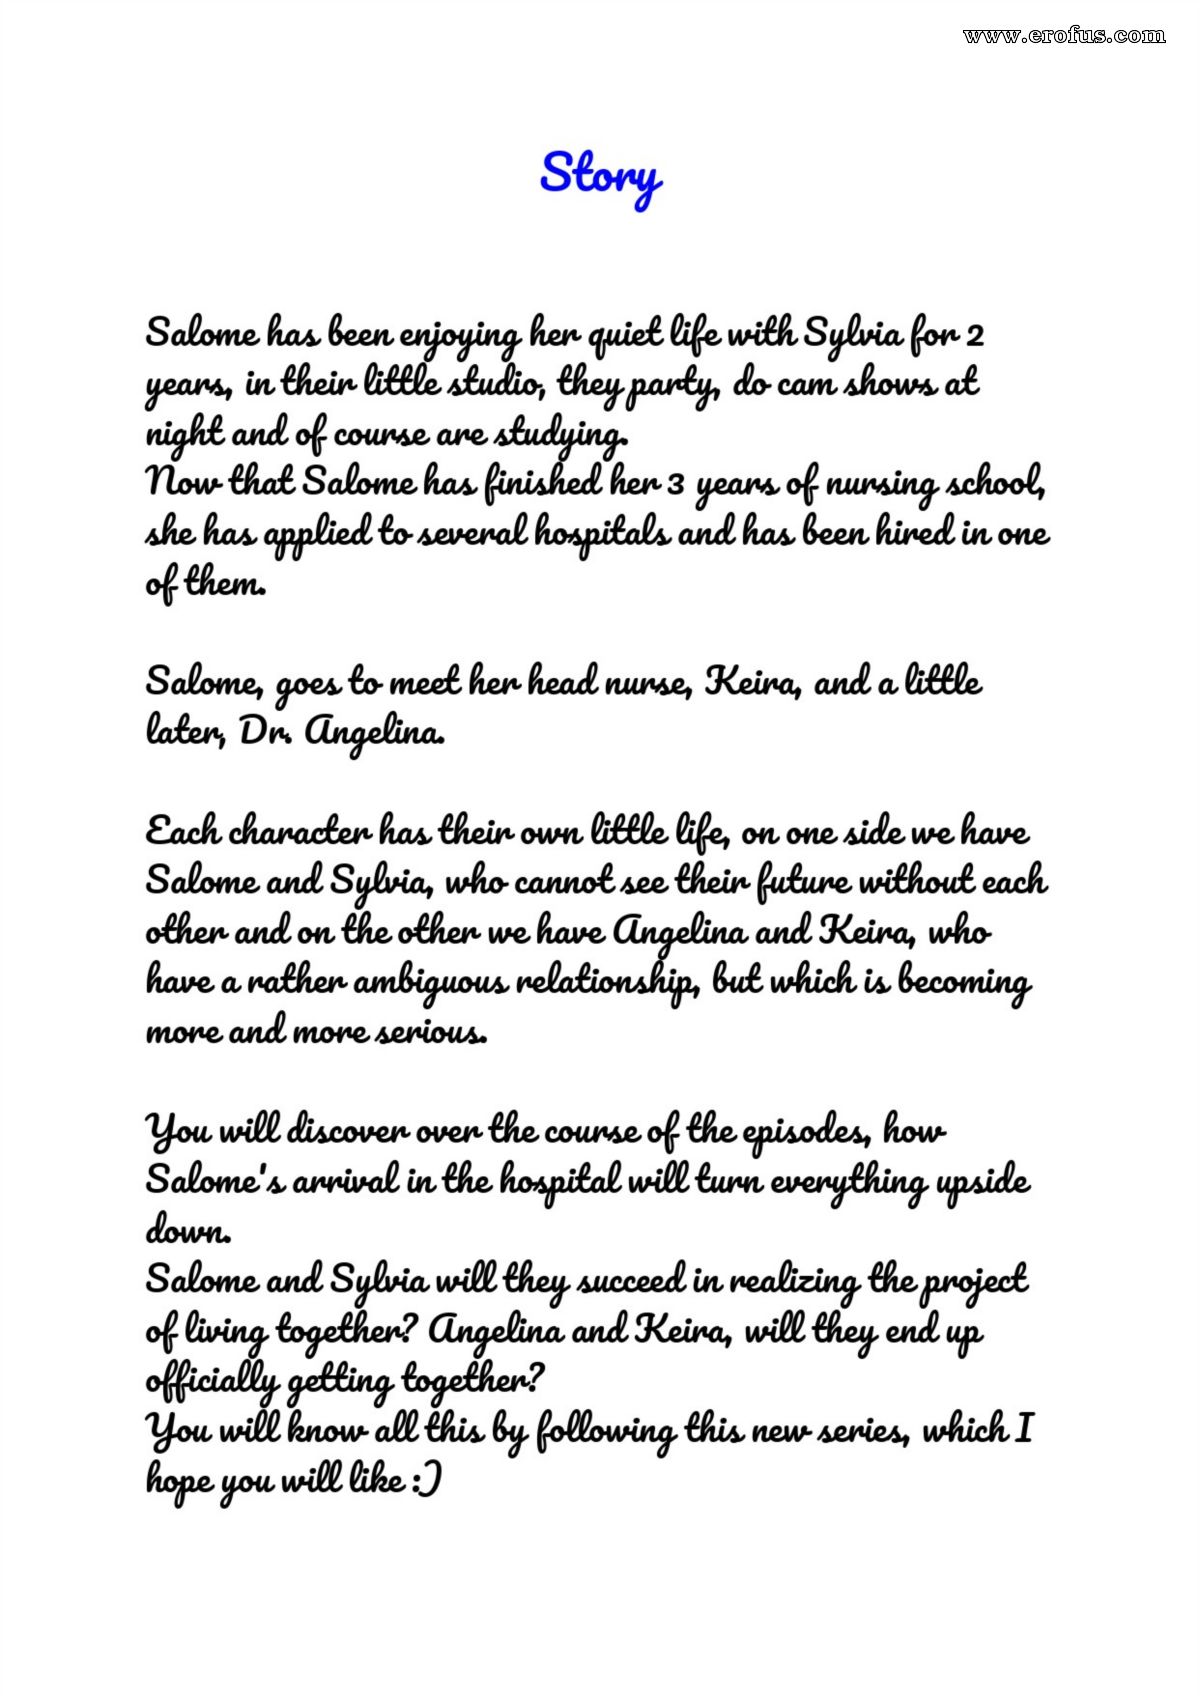 www.erofus.com
Story
Salome has been enjoying her quiet life with Sylvia for 2
years, in their little studio, they party, do cam shows at
night and of course are studying.
Now that Salome has finished her 3 years of nursing school,
she has applied to several hospitals and has been hired in one
of them.
Salome, goes to meet her head nurse, Keira, and a little
later, Dr. Angelina.
Each character has their own little life, on one side we have
Salome and Sylvia, who cannot see their future without each
other and on the other we have Angelina and Keira, who
have a rather ambiguous relationship, but which is becoming
more and more serious.
You will discover over the course of the episodes, how
Salome's arrival in the hospital will turn everything upside
down.
Salome and Sylvia will they succeed in realizing the project
of living together? Angelina and Keira, will they end up
officially getting together?
You will know all this by following this new series, which I
hope you will like :)